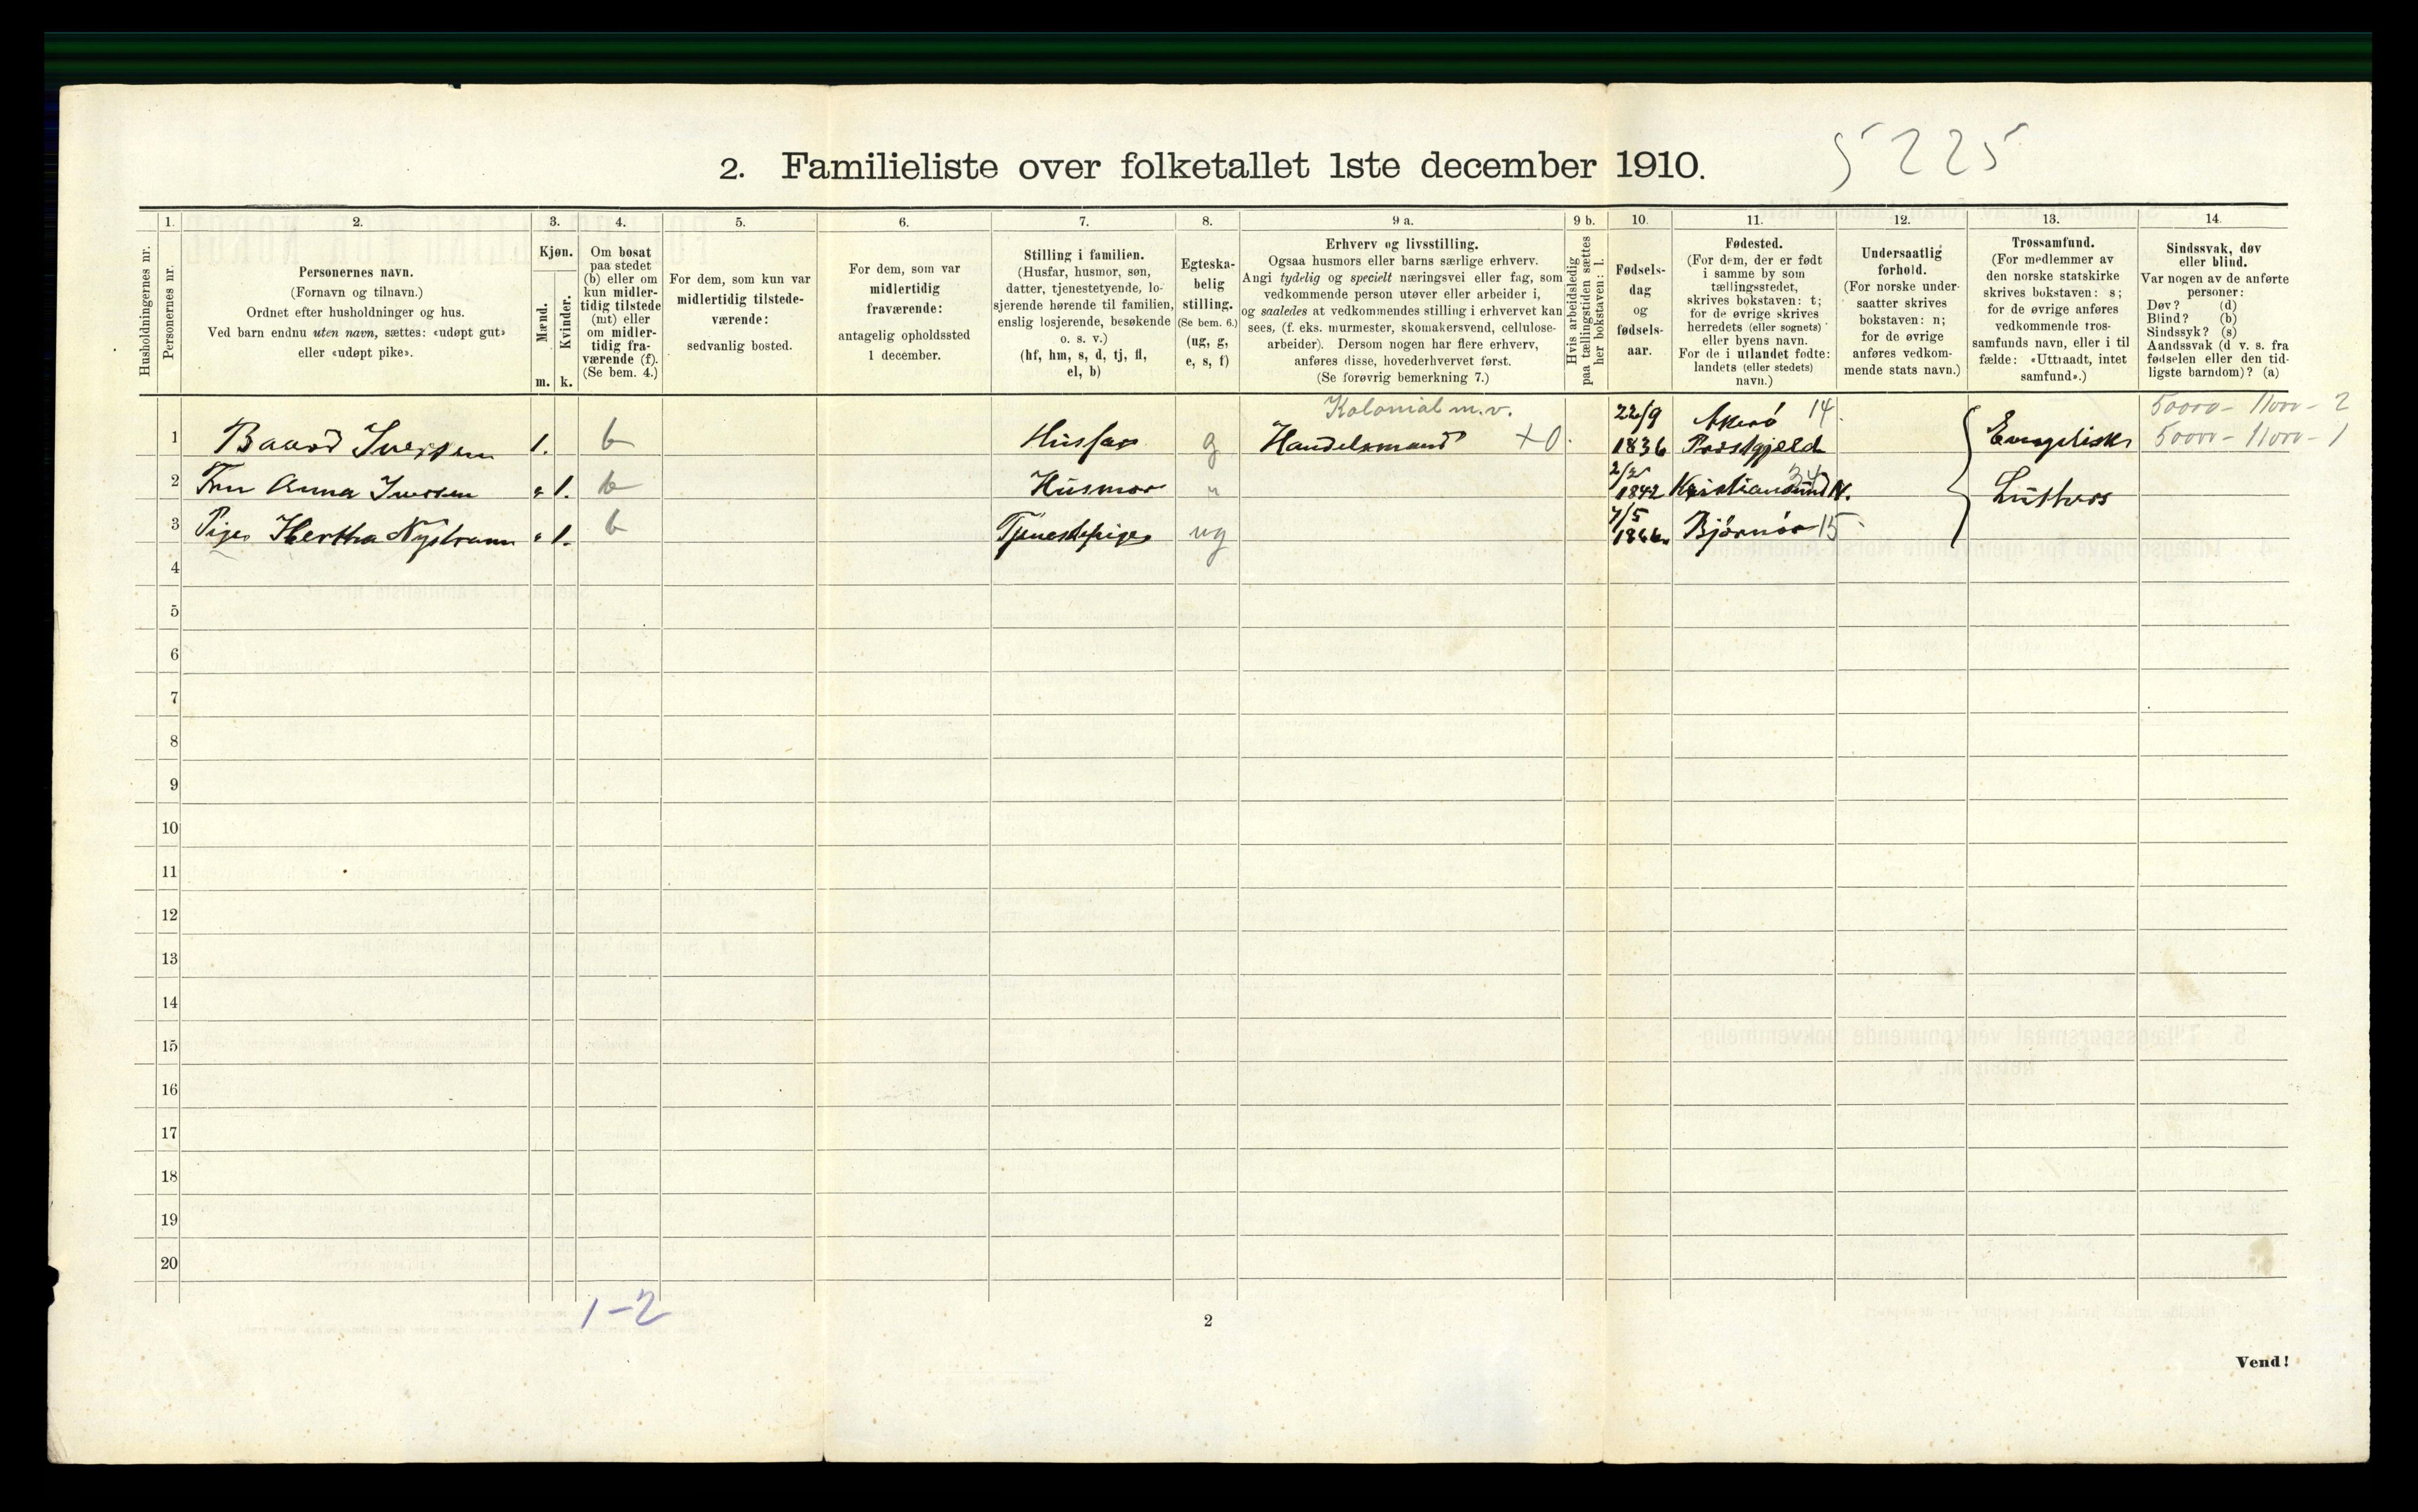 5225
2. Familieliste over folketallet 1ste december 1910.
Husholdningernes nr.
1.
Personernes nr.
2.
Personernes navn.
(Fornavn og tilnavn.)
Ordnet efter husholdninger og hus.
Ved barn endnu uten navn, sættes: «udøpt gut»
eller «udøpt pike».
3.
Kjøn.
Mænd.
Kvinder.
m. k.
4.
Om bosat
paa stedet
(b) eller om
kun midler-
tidig tilstede
(mt) eller
om midler-
tidig fra-
værende (f).
(Se bem. 4.)
5.
For dem, som kun var
midlertidig tilstede-
værende:
sedvanlig bosted.
6.
For dem, som var
midlertidig
fraværende:
antagelig opholdssted
1 december.
7.
Stilling i familien.
(Husfar, husmor, søn,
datter, tjenestetyende, lo-
sjerende hørende til familien,
enslig losjerende, besøkende
o. s. v.)
(hf, hm, s, d, tj, fl,
el, b)
8.
Egteska-
belig
stilling.
(Se bem. 6.)
(ug, g,
e, s, f)
9 a.
Erhverv og livsstilling.
Ogsaa husmors eller barns særlige erhverv.
Angi tydelig og specielt næringsvei eller fag, som
vedkommende person utøver eller arbeider i,
og saaledes at vedkommendes stilling i erhvervet kan
sees, (f. eks. murmester, skomakersvend, cellulose-
arbeider). Dersom nogen har flere erhverv,
anføres disse, hovederhvervet først.
(Se forøvrig bemerkning 7.)
9 b.
Hvis arbeidsledig
paa tællingstiden sættes
her bokstaven: l.
10.
Fødsels-
dag
og
fødsels-
aar.
11.
Fødested.
(For dem, der er født
i samme by som
tællingsstedet,
skrives bokstaven: t;
for de øvrige skrives
herredets (eller sognets)
eller byens navn.
For de i utlandet fødte:
landets (eller stedets)
navn.)
12.
Undersaatlig
forhold.
(For norske under-
saatter skrives
bokstaven: n;
for de øvrige
anføres vedkom-
mende stats navn.)
13.
Trossamfund.
(For medlemmer av
den norske statskirke
skrives bokstaven: s;
for de øvrige anføres
vedkommende tros-
samfunds navn, eller i til
fælde: «Uttraadt, intet
samfund».)
14.
Sindssvak, døv
eller blind.
Var nogen av de anførte
personer:
Døv? (d)
Blind? (b)
Sindssyk? (s)
Aandssvak (d. v. s. fra
fødselen eller den tid-
ligste barndom)? (a)
Kolonial m.v. 22/9 Akerø 14 50000 - 11000 - 2
1 Baard Iversen 1. b Husfar g Handelsmand + 0. 1836 Præstgjeld Evangelisk 50000 - 11000 - 1
2/2 34
2 Fru Anna Iversen " 1. b Husmor " 1842 Kristiansund N. Luthers
7/5
3 Pige Hertha Nystrøm " 1. b Tjenestepige ug Bjørnør 15
4
5
6
7
8
9
10
11
12
13
14
15
16
17
18
19
20
1-2
2
Vend!